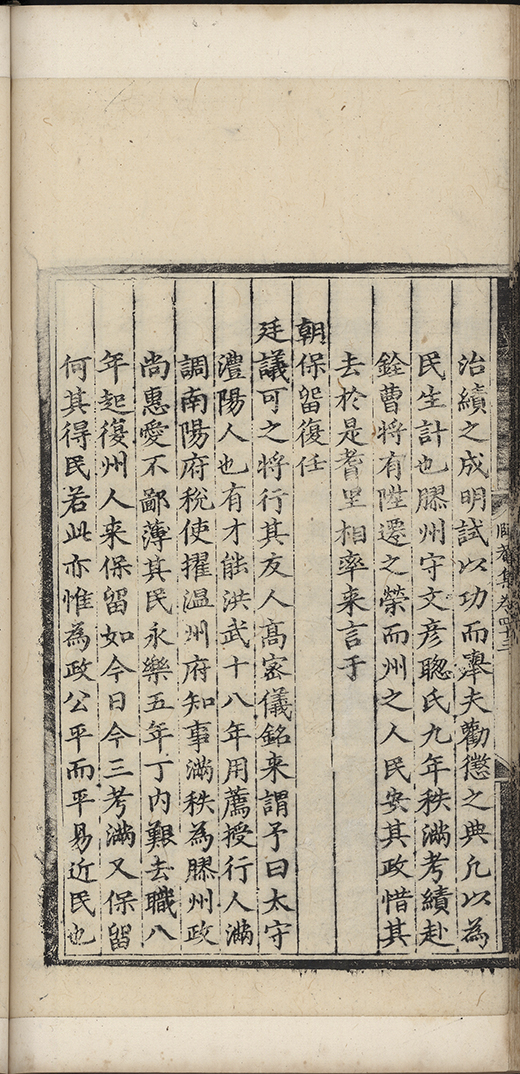 治績之成明試以功而舉夫勸懲之典凡以為
民生計也膠州守文彦聰氏九年秩滿考績赴
銓曹將有陞遷之榮而州之人民安其政惜其
去於是耆里相率来言于
朝保留復任
廷議可之將行其友人高密儀銘来謂予曰太守
澧陽人也有才能洪武十八年用薦授行人滿
調南陽府稅使擢温州府知事滿秩為膠州政
尚惠愛不鄙薄其民永樂五年丁内艱去職八
年起復州人来保留如今日今三考滿又保留
何其得民若此亦惟為政公平而平易近民也
集卷四十三